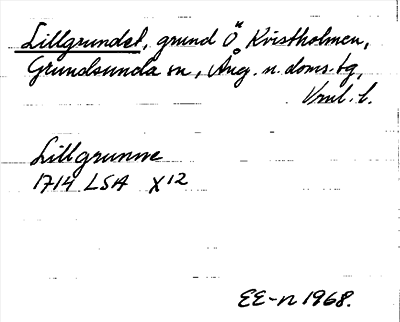 Lillgrundet, grund Ö Kvistholmen,
Grundsunda sn, Ång. n. doms. tg,
Vnul. l.
Lillgrunne
1714 LSA X12
EE-n 1968.